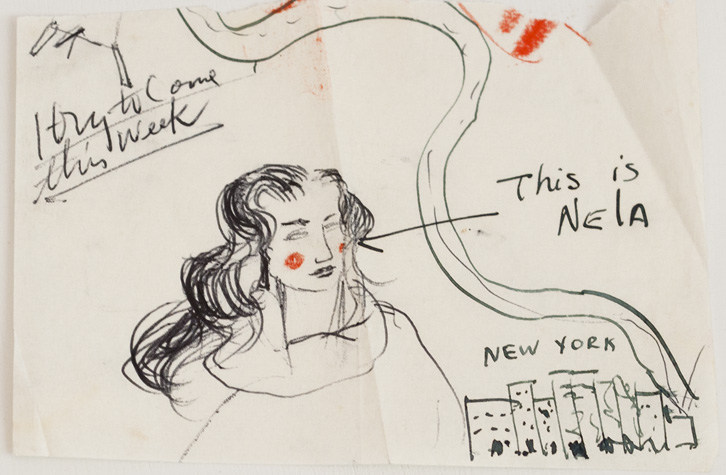 I try to Come
this week
This is
NELA
NEW YORK